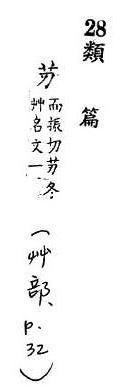 28 類篇
芕
而振切芕冬
艸名文一
(艸部、p.32)